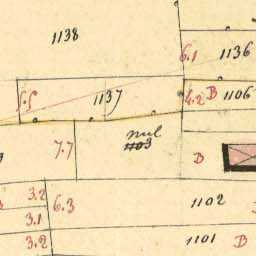 1138
6.1 1136
5.5 1137 4.2 B 1106
nul
1103
7.7 B
3.2 6.3 1102
3.1
3.2 1101 B